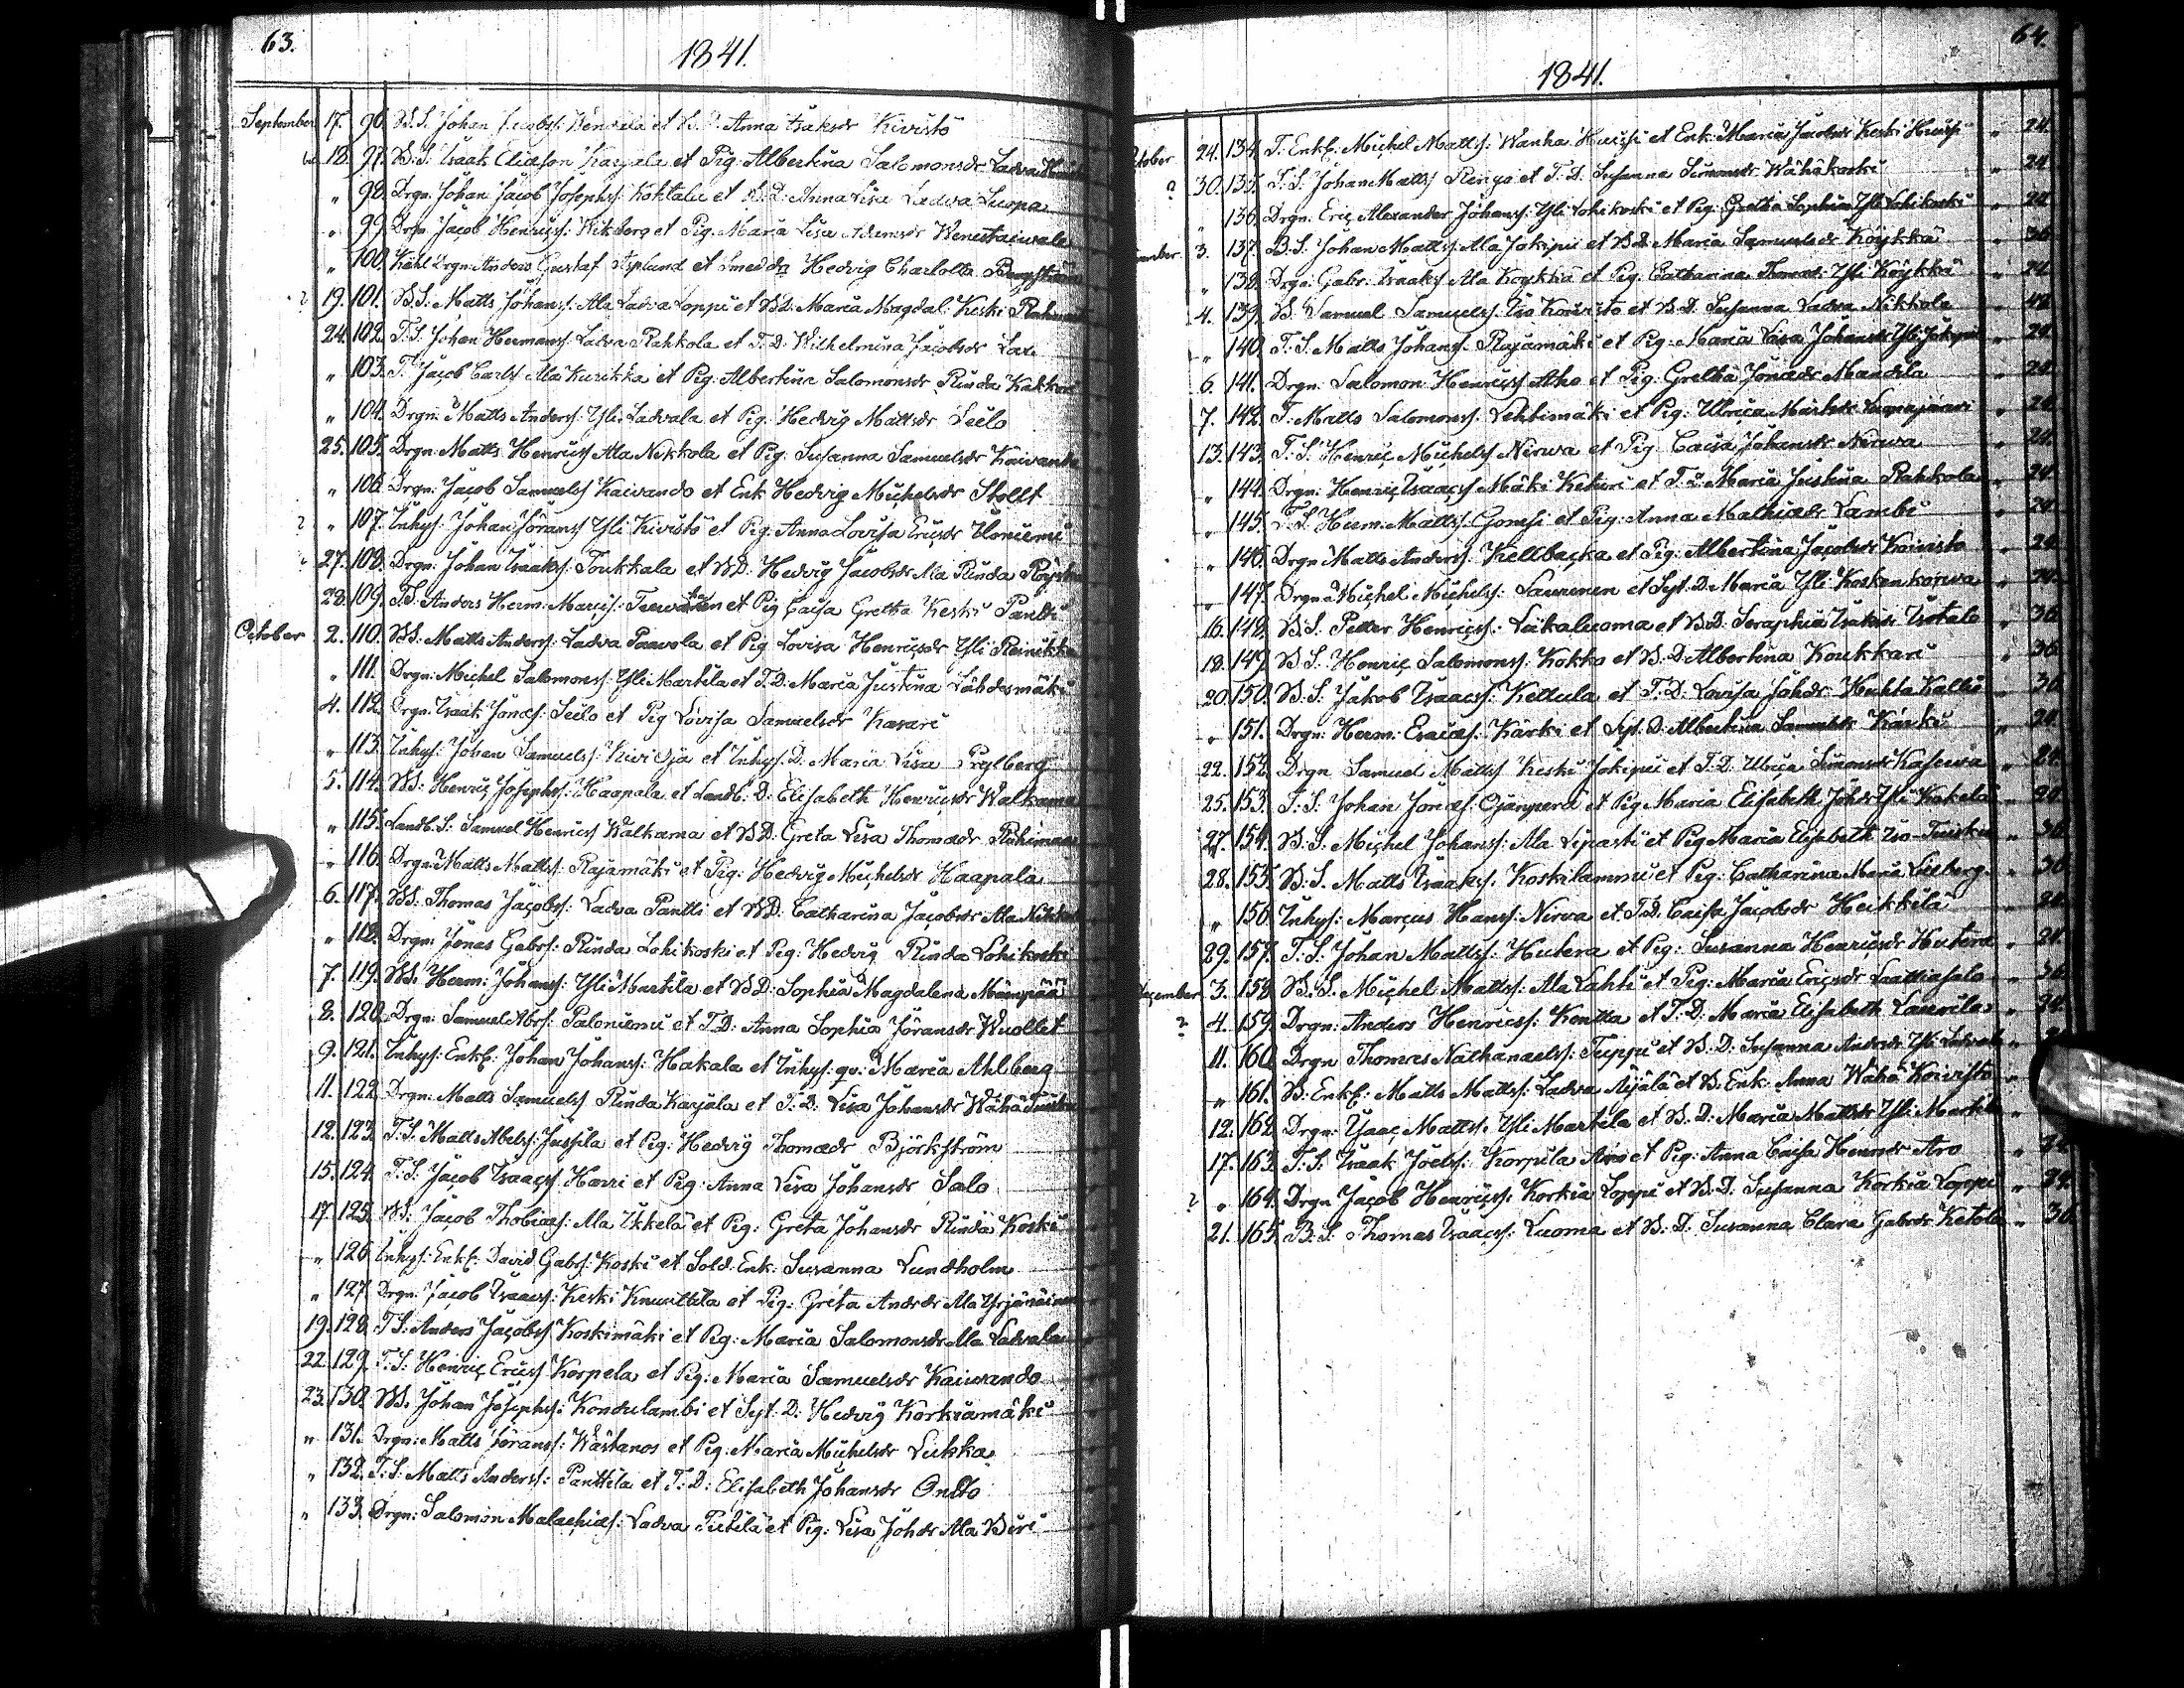 63.
1841.
September 17. 96. B.S. Johan Jacobss: Wennelä et B.D. Anna Isaksdr Kivistö
18. 97. B.S. Isaak Eliasson Karjala et Pig: Albertina Salomonsdr Ladva
" 98. Drgn: Johan Jacob Josephss: Kohtala et B.D: Anna Lisa Ladva Luopa
" 99. Drgn Jacob Henricss: Wikberg et Pig. Maria Lisa Adamsdr
" 100. Anders Gustaf Asplund et Smed dr Hedvig Charlotta Bergström
? 19. 101. B.S: Matts Johanss: Ala Ladva Loppi et BD: Maria Magdal: Keski
24. 102. T.S. Johan Hermanss: Ladva Rahkola et T.D. Wilhelmina Jacobsdr Lax
" 103. T. Jacob Carlss Ala Kurikka et Pig: Albertina Salomonsdr Rinda Kakkori
" 104. Drgn: Matts Anderss: Yli Ladvala et Pig. Hedvig Mattsdr Seilo
25. 105. Drgn: Matts Henricss Ala Nikkola et Pig: Susanna Samuelsdr Kaivando
" 106. Drgn: Jacob Samuelss Kaivando et Enk Hedvig Michelsdr Stollt
? " 107. Inhys: Johan Jöranss Yli Kivistö et Pig. Anna Lovisa Ericsdr Uloniemi
? 27. 108. Drgn: Johan Isaakss: Toukkala et BD: Hedvig Jacobsdr Ala Rinda
28. 109. T.S: Anders Herm: Marcis: et Pig Caisa Gretha Keski Pantti
October 2. 110. BS: Matts Anderss: Ladva Paavola et Pig Lovisa Henricsdr Yli Reinikka
" 111. Drgn: Michel Salomonss: Yli Martila et T.D: Maria Justina Lähdesmäki
4. 112. Drgn: Isaak Jonæs: Seilo et Pig Lovisa Samuelsdr Kasari
" 113. Inhys: Johan Samuelss: Kivi Oja et Inhys: D. Maria Lisa Prylberg
5. 114. BS: Henric Josephss: Haapala et Landb: D: Elisabeth Henricsdr Walkama
" 115. Landb: S: Samuel Henricss Walkama et BD: Greta Lisa Thomædr
" 116. Drgn: Matts Mattss: Rajamäki et Pig: Hedvig Michelsdr Haapala
6. 117. BS: Thomas Jacobss: Ladva Pantti et BD: Catharina Jacobsdr Ala Nikkola
" 118. Drgn: Jonas Gabrs: Rinda Lohikoski et Pig: Hedvig Rinda Lohikoski
7. 119. BS: Herm: Johanss: Yli Martila et BD: Sophia Magdalena Mämpää
8. 120. Drgn: Samuel Abrs: Paloniemi et T.D: Anna Sophia Jöransdr Wuollet
9. 121. Inhys: Enkl: Johan Johanss: Hakala et Inhys: qv: Maria Ahlberg
11. 122. Drgn: Matts Samuelss Rinda Karjala et T.D: Lisa Johansdr Wähä
12. 123. T.S. Matts Abelss: Jussila et Pig: Hedvig Thomædr Björkström
15. 124. T.S. Jacob Isaacss Harri et Pig: Anna Lisa Johansdr Salo
17. 125. BS. Jacob Thobiaes: Ala Ikkelä et Pig: Greta Johansdr Rinda Koski
" 126. Inhys: Enkl: David Gabrs: Koski et Sold. Enk: Susanna Lundholm
" 127. Drgn: Jacob Isaacss: Keski Knuuttila et Pig: Greta Andrdr Ala Yrjänäinen
19. 128. T.S: Anders Jacobss Koskimäki et Pig: Maria Salomonsdr Ala Ladvala
22. 129. T.S. Henric Ericss Korpela et Pig: Maria Samuelsdr Kaivando
23. 130. BS. Johan Josephss: Kondulambi et Syt. D: Hedvig Korkiamäki
" 131. Drgn: Matts Jöranss: Wästanos et Pig: Maria Michelsdr Lukka
" 132. T.S: Matts Anderss: Panttila et T.D: Elisabeth Johansdr Ondto
" 133. Drgn: Salomon Malachiæs: Ladva Pietilä et Pig: Lisa Johdr Ala Wiri
64.
1841.
24. 134. T. Enkl: Michel Mattss: Wanha Huissi et Enk: Maria Jacobsdr Keski Huissi " 24.
? 30. 135. T.S. Johan Mattss Renyä et T.D. Susanna Simonsdr Wähäkoski " 24
" 136. Drgn: Eric Alexander Johanss: Yli Lohikoski et Pig: Gretha Sophia Yli Lohikoski " 24
3. 137. B.S. Johan Mattss Ala Jokipii et BD: Maria Samuelsdr Köykkä " 36
" 138. Drgn: Gabr. Isaakss Ala Köykkä et Pig: Catharina Thomædr: Yli Köykkä " 24
4. 139. B. Samuel Samuelss: Iso Koivisto et B.D. Susanna Ladva Nikkola " 48
" 140. T.S. Matts Johanss: Rajamäki et Pig: Maria Lisa Johansdr Yli Jokipii " 24
6. 141. Drgn: Salomon Henricss Aho et Pig: Gretha Jonædr Mandila " 24.
7. 142. T: Matts Salomonss: Lehtimäki et Pig: Ulrica Mårtsdr Luopajärvi " 24
13. 143. T.S. Henric Michelss Nirva et Pig Caisa Johansdr Nirva " 24.
" 144. Drgn: Henric Isaacss Mäki Keturi et T.D. Maria Justina Rahkola " 24
" 145. T.S. Herm: Mattss: Gomsi et Pig: Anna Mathiædr Lambi " 24
" 146. Drgn Matts Anderss: Kellbacka et Pig: Albertina Jacobsdr Koivisto " 24
" 147. Drgn: Michel Michelss: Laurinen et Syt. D. Maria Yli Koskenkorva " 24
16. 148. B.S: Petter Henricss: Leikaluoma et B.D: Seraphia Isaksdr Isotalo " 36
18. 149. B.S: Henric Salomonss: Kokko et B.D. Albertina Koukkari " 36
20. 150. B.S. Jakob Isaacss: Kettula et T.D. Lovisa Johdr: Huhta Kallio " 36
" 151. Drgn: Herm: Esaiæs: Kärki et Syt: D. Albertina Samuelsdr Kärki " 24
22. 152. Drgn Samuel Mattss Keski Jokipii et T.D. Ulrica Simonsdr Kaseva " 24
25. 153. T.S. Johan Jonæs: Ojänperä et Pig Maria Elisabeth Johdr Yli Kokela " 20.
27. 154. B.S: Michel Johanss: Ala Liparti et Pig Maria Elisabeth Iso-Tuisku " 36
28. 155. B.S. Matts Isaakss: Koskilammi et Pig: Catharina Maria Lillberg " 36
" 156. Inhys: Marcus Hanss: Nirva et T.D. Caisa Jacobsdr Heikkilä
29. 157. T.S. Johan Mattss: Hutera et Pig: Susanna Henricsdr Hutera " 24
December 3. 158. B.S. Michel Mattss: Ala Lahti et Pig: Maria Ericsdr Laattiasalo " 36
? 4. 159. Drgn: Anders Henricss: Kontta et T.D: Maria Elisabeth Laurila " 24.
11. 160. Drgn Thomas Nathanaelss: Tuppi et B.D: Susanna Andrsdr Yli Ladvala
" 161. B. Enkl: Matts Mattss: Ladva Äijälä et B. Enk: Anna Wähä Koivisto
12. 162. Drgn: Isaac Mattss: Yli Martila et B.D: Maria Mattsdr Yli Martila
17. 163. T.S. Isaak Joelss: Korpila Aro et Pig: Anna Caisa Henricsdr Aro
? " 164. Drgn Jacob Henricss: Korkia Loppi et B.D: Susanna Korkia Loppi " 24.
21. 165. B.S. Thomas Isaacss: Luoma et B.D. Susanna Clara Gabrsdr Ketola " 36